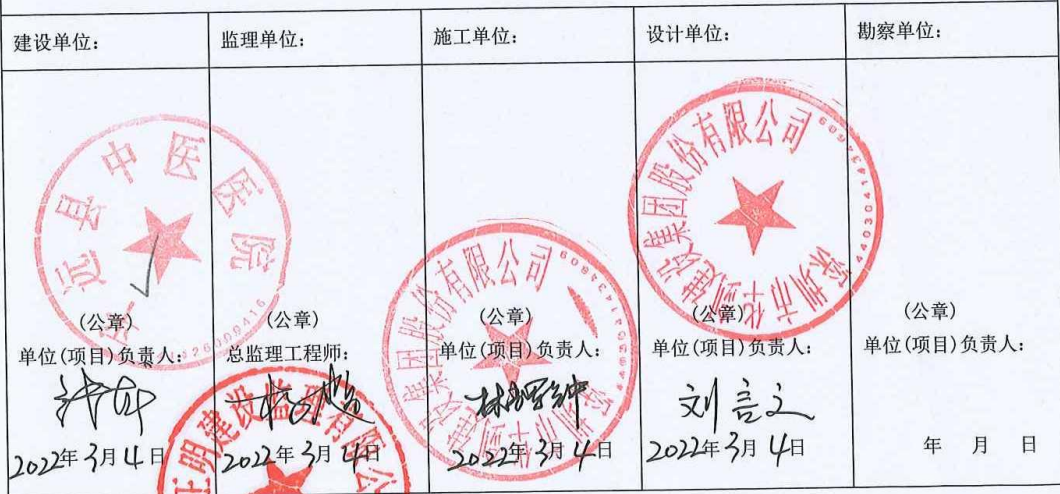 建设单位：
监理单位：
施工单位：
设计单位：
勘察单位：
远县中医医院
(公章)
单位(项目)负责人：
2022年3月4日
(公章)
总监理工程师：
正明建设监理有限公
2022年3月4日
集团股份有限公司
(公章)
单位(项目)负责人：
2022年3月4日
深圳市华剀建设集团股份有限公司
4403014134609
(公章)
单位(项目)负责人：
刘言文
2022年3月4日
(公章)
单位(项目)负责人：
年 月 日